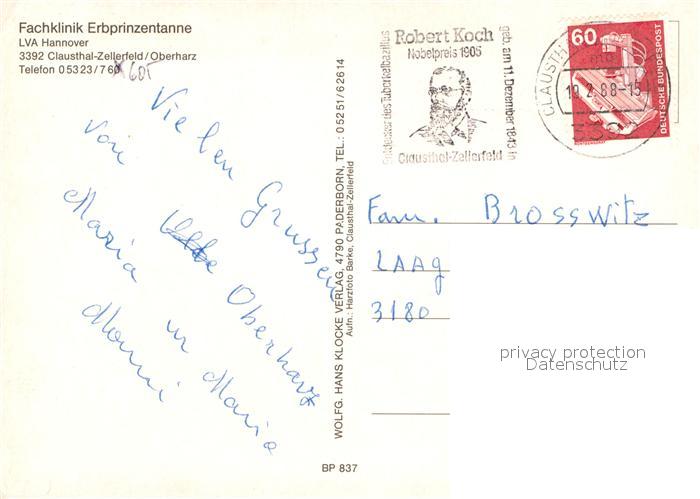 Fachklinik Erbprinzentanne
LVA Hannover
3392 Clausthal-Zellerfeld/Oberharz
Telefon 05323/7
605
Vielen Grussen
von Oberharz
Maria u Maria
Manni
WOLFG. HANS KLOCKE VERLAG, 4790 PADERBORN, TEL.: 05251/62614
Aufn.: Harzfoto Barke, Clausthal-Zellerfeld
BP 837
Robert Koch
Nobelpreis 1905
Entdecker des Tuberkelbazillus
geb. am 11. Dezember 1843 in
Clausthal-Zellerfeld
CLAUSTH
2.88-15
60
DEUTSCHE BUNDESPOST
Fam. Brosswitz
LAAg
3180
privacy protection
Datenschutz